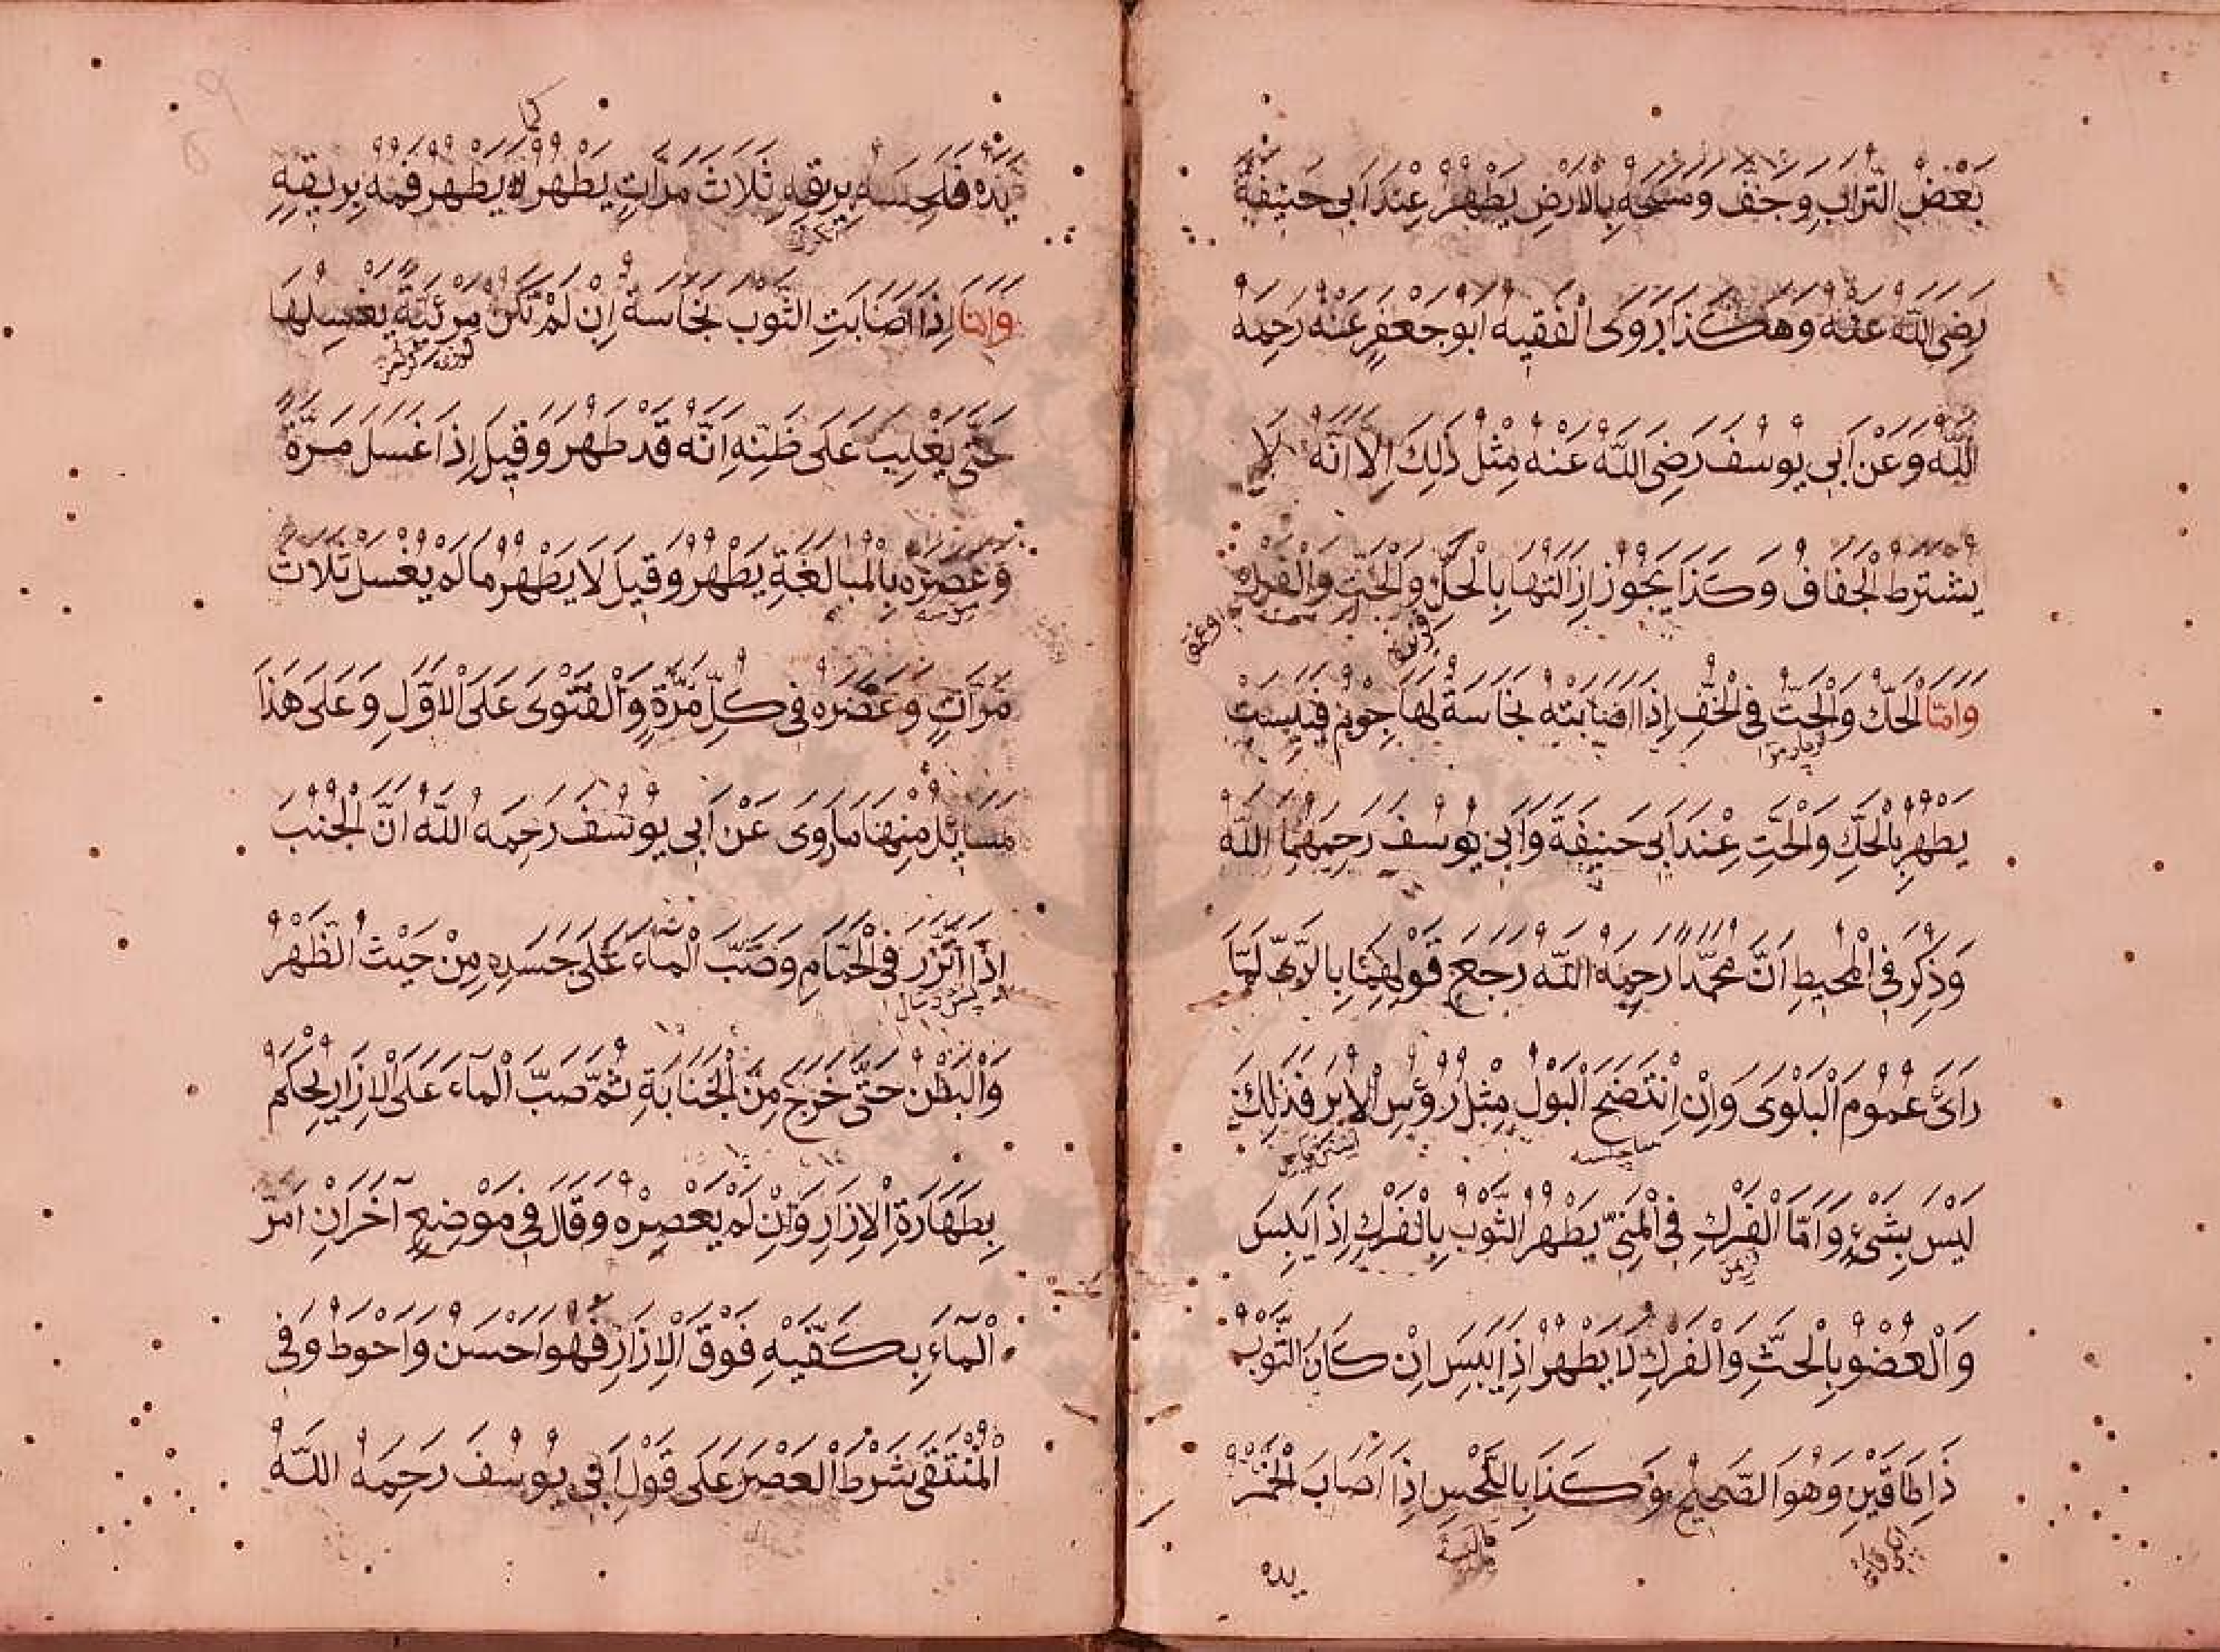 بَعْضُ التُّرَابِ وَجَفَّ وَمَسَحَهُ بِالْاَرْضِ يَطْهُرُ عِنْدَ اَبِى حَنِيفَةَ
رَضِىَ اللّٰهُ عَنْهُ وَهٰكَذَا رَوَى الْفَقِيهُ اَبُو جَعْفَرٍ عَنْهُ رَحِمَهُ
اللّٰهُ وَعَنْ اَبِى يُوسُفَ رَضِىَ اللّٰهُ عَنْهُ مِثْلُ ذٰلِكَ اِلَّا اَنَّهُ لَا
يَشْتَرِطُ الْجَفَافَ وَكَذَا يَجُوزُ اِزَالَتُهَا بِالْحَكِّ وَالْحَتِّ وَالْفَرْكِ
وَاَمَّا الْحَكُّ وَالْحَتُّ فِى الْخُفِّ اِذَا اَصَابَتْهُ نَجَاسَةٌ لَهَا جِرْمٌ فَيَبِسَتْ
يَطْهُرُ بِالْحَكِّ وَالْحَتِّ عِنْدَ اَبِى حَنِيفَةَ وَاَبِى يُوسُفَ رَحِمَهُمَا اللّٰهُ
وَذُكِرَ فِى الْمُحِيطِ اَنَّ مُحَمَّدًا رَحِمَهُ اللّٰهُ رَجَعَ قَوْلِهِمَا بِالرَّىِّ لَمَّا
رَاَى عُمُومَ الْبَلْوَى وَاِنِ انْتَضَحَ الْبَوْلُ مِثْلُ رُؤُسِ الْاِبَرِ فَذٰلِكَ
لَيْسَ بِشَىْءٍ وَاَمَّا الْفَرْكُ فِى الْمَنِىِّ يَطْهُرُ الثَّوْبُ بِالْفَرْكِ اِذَا يَبِسَ
وَالْعُضْوُ بِالْحَتِّ وَالْفَرْكِ لَا يَطْهُرُ اِذَا يَبِسَ اِنْ كَانَ الثَّوْبُ
ذَا طَاقَيْنِ وَهُوَ الصَّحِيحُ وَكَذَا بِاللَّحْسِ اِذَا اَصَابَ الْخَمْرُ
يده
يَدَهُ فَلَحِسَهُ بِرِيقِهِ ثَلَاثَ مَرَّاتٍ يَطْهُرُ كما يَطْهُرُ فَمُهُ بِرِيقِهِ
وَاِمَّا اِذَا اَصَابَتِ الثَّوْبَ نَجَاسَةٌ اِنْ لَمْ تَكُنْ مَرْئِيَّةً يَغْسِلُهَا
حَتَّى يَغْلِبَ عَلَى ظَنِّهِ اَنَّهُ قَدْ طَهُرَ وَقِيلَ اِذَا غَسَلَ مَرَّةً
وَعَصَرَهُ بِالْمُبَالَغَةِ يَطْهُرُ وَقِيلَ لَا يَطْهُرُ مَا لَمْ يَغْسِلْ ثَلَاثَ
مَرَّاتٍ وَعَصَرَهُ فِى كُلِّ مَرَّةٍ وَالْفَتْوَى عَلَى الْاَوَّلِ وَعَلَى هٰذَا
مَسَائِلُ مِنْهَا مَا رُوِىَ عَنْ اَبِى يُوسُفَ رَحِمَهُ اللّٰهُ اَنَّ الْجُنُبَ
اِذَا اتَّزَرَ فِى الْحَمَّامِ وَصَبَّ الْمَاءَ عَلَى جَسَدِهِ مِنْ حَيْثُ الظَّهْرُ
وَالْبَطْنُ حَتَّى خَرَجَ مِنَ الْجَنَابَةِ ثُمَّ صَبَّ الْمَاءَ عَلَى الْاِزَارِ يُحْكَمُ
بِطَهَارَةِ الْاِزَارِ وَاِنْ لَمْ يَعْصِرْهُ وَقَالَ فِى مَوْضِعٍ آخَرَ اِنْ اَمَرَّ
الْمَاءَ بِكَفَّيْهِ فَوْقَ الْاِزَارِ فَهُوَ اَحْسَنُ وَاَحْوَطُ وَفِى
الْمُنْتَقَى شَرْطُ الْعَصْرِ عَلَى قَوْلِ اَبِى يُوسُفَ رَحِمَهُ اللّٰهُ